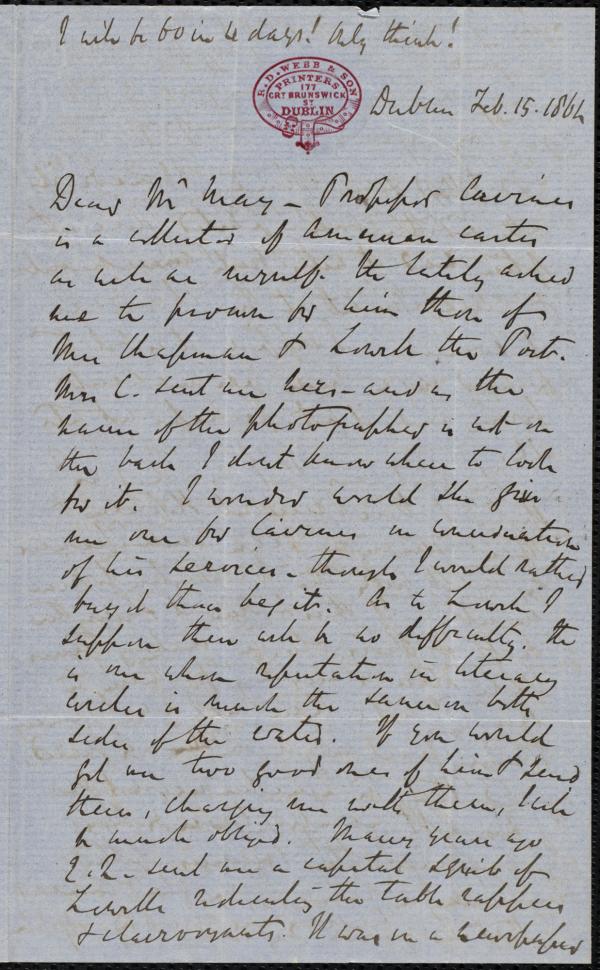 I will be 60 in 4 days! Only think!
R. D. WEBB & SON
PRINTERS
177
GRT BRUNSWICK
ST
DUBLIN
Dublin Feb. 15. 1864
Dear Mr May – Professor Cairnes
is a collector of American cartes
as well as myself. He lately asked
me to procure for him those of
Mrs Chapman & Lowell the Poet.
Mrs C. sent me hers – and as the
name of the photographer is not on
the back I don't know where to look
for it. I wonder would she give
me one for Cairnes in consideration
of his services – though I would rather
buy it than beg it. As to Lowell I
suppose there will be no difficulty. He
is one whose reputation in literary
circles is much the same on both
sides of the water. If you would
get me two good ones of him & send
them, charging me with them, I will
be much obliged. Many years ago
E. Q. sent me a capital squib of
Lowell's ridiculing the table rappers
& clairvoyants. It was in a newspaper